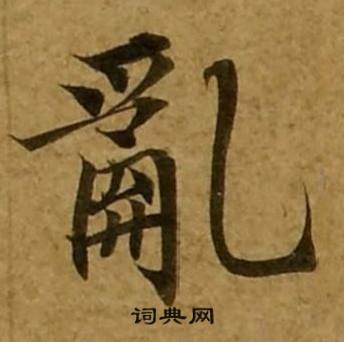 亂
词典网